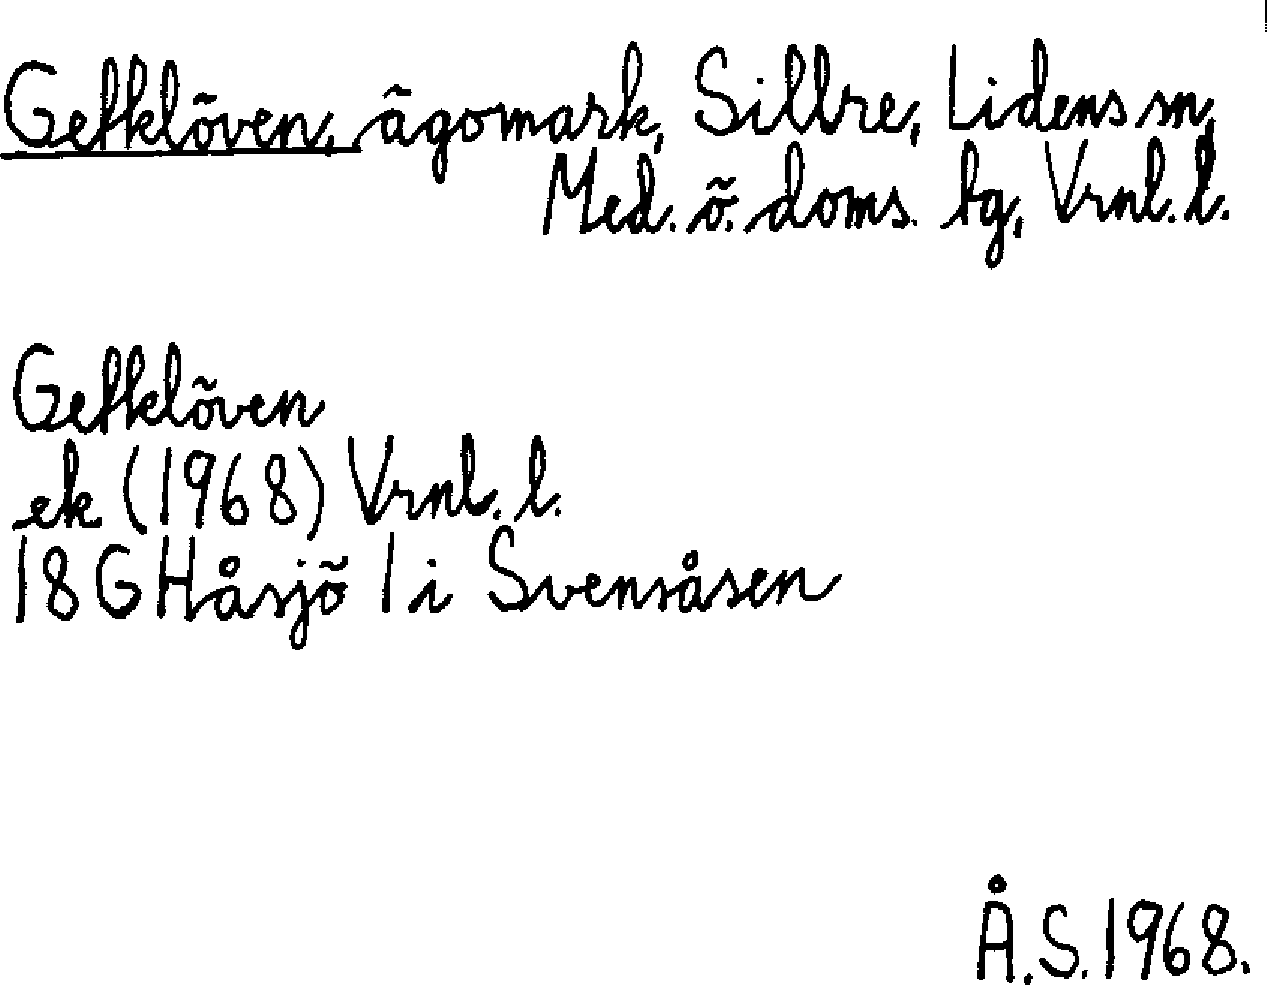 Getklöven, ägomark, Sillre, Lidens sn,
Med. ö. doms. tg, Vrnl. l.
Getklöven
ek (1968) Vrnl. l.
18G Håsjö 1 i Svensåsen
Å.S. 1968.